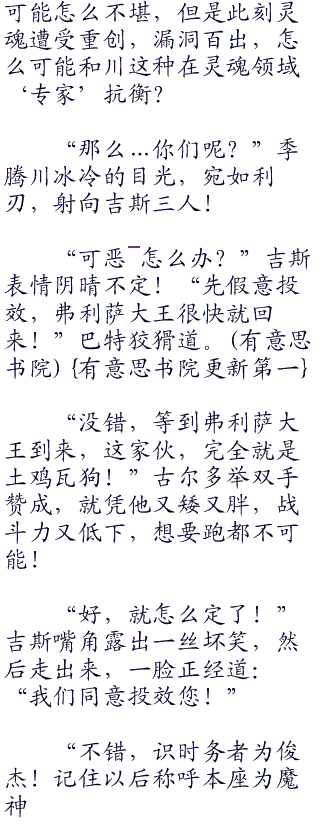 可能怎么不堪，但是此刻灵
魂遭受重创，漏洞百出，怎
么可能和川这种在灵魂领域
‘专家’抗衡？
“那么…你们呢？”季
腾川冰冷的目光，宛如利
刃，射向吉斯三人！
“可恶¯怎么办？”吉斯
表情阴晴不定！“先假意投
效，弗利萨大王很快就回
来！”巴特狡猾道。(有意思
书院) {有意思书院更新第一}
“没错，等到弗利萨大
王到来，这家伙，完全就是
土鸡瓦狗！”古尔多举双手
赞成，就凭他又矮又胖，战
斗力又低下，想要跑都不可
能！
“好，就怎么定了！”
吉斯嘴角露出一丝坏笑，然
后走出来，一脸正经道：
“我们同意投效您！”
“不错，识时务者为俊
杰！记住以后称呼本座为魔
神